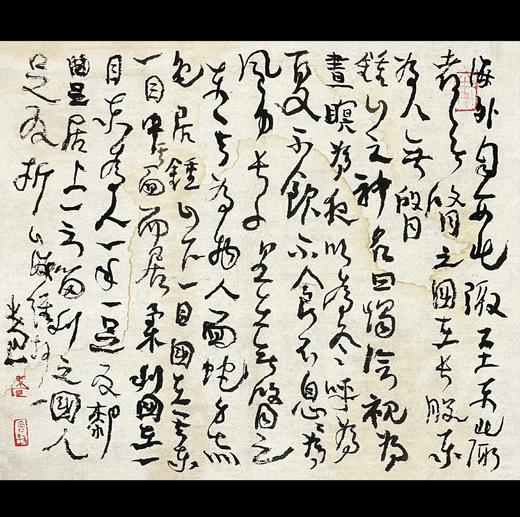 海外自西北陬至东北陬
者无䏿之國在长股东
为人无䏿
鍾山之神名曰燭陰視为
晝瞑为夜吹为冬呼为
夏不飲不食不息息为
风身长千里在无䏿之
东其为物人面蛇身赤
色居鍾山下一目國在其东
一目中其面而居柔利國在一
目东为人一手一足反膝
曲足居上一云留利之国人
足反折山海經